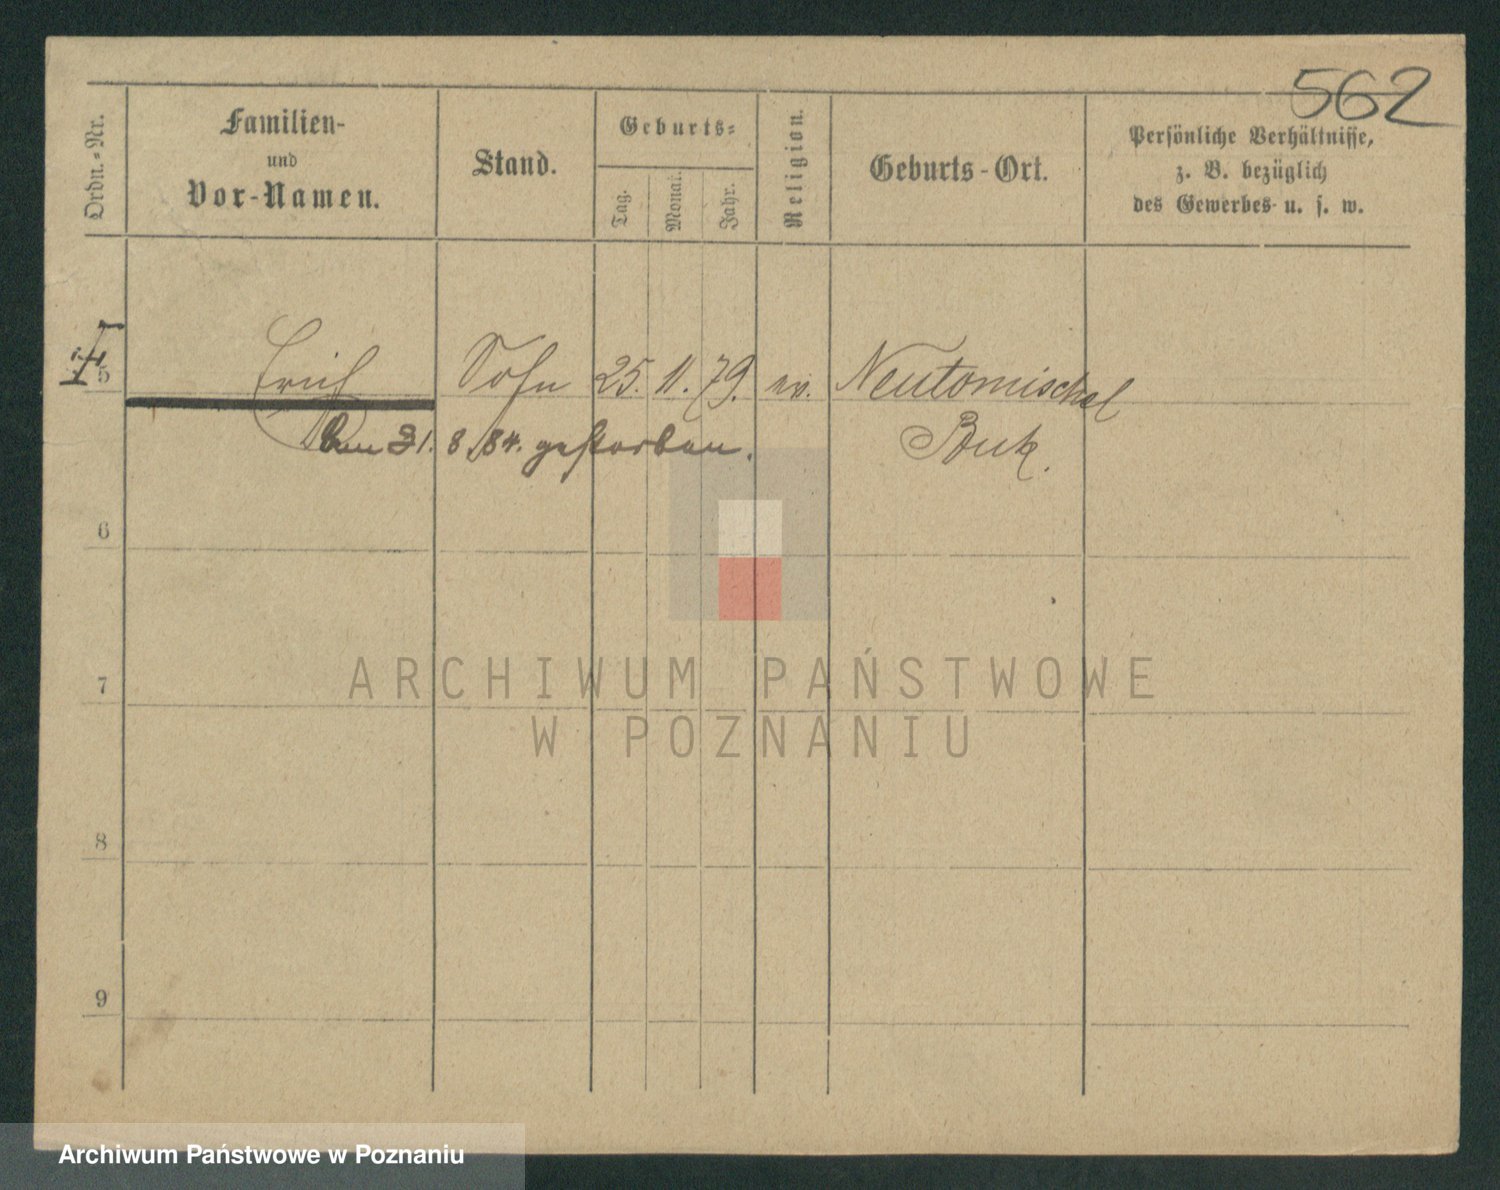 562
Ordn.-Nr.
Familien-
und
Vor-Namen.
Stand.
Geburts-
Tag.
Monat.
Jahr.
Religion.
Geburts-Ort.
Persönliche Verhältnisse,
z. B. bezüglich
des Gewerbes u. s. w.
5 Erich Sohn 25. 11. 79. ev. Neutomischel
den 31. 8. 84. gestorben. Buk.
6
7
ARCHIWUM PAŃSTWOWE
W POZNANIU
8
9
Archiwum Państwowe w Poznaniu